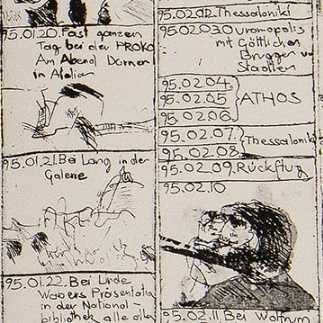 95.01.20. Fast ganzen
Tag bei der PROKO
Am Abend Dorner
in Atelier
95.01.21. Bei Lang in der
Galerie
95.01.22. Bei Linde
Wabers Präsentatio
in der National-
bibliothek alle alle
95.02.02. Thessaloniki
95.02.03. Uromopolis
mit Göttlicher
Brugger u
Staatlen
95.02.04.
95.02.05 ATHOS
95.02.06
95.02.07. Thessaloniki
95.02.08
95.02.09. Rückflug
95.02.10
95.02.11 Bei Wolfrum